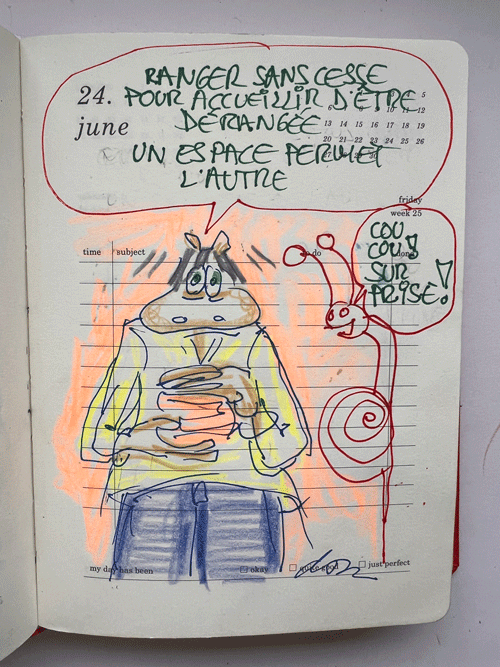 RANGER SANS CESSE
24. POUR ACCUEILLIR D'ÊTRE 5
10 11 12
june DÉRANGÉE 13 14 15 16 17 18 19
20 21 22 23 24 25 26
UN ESPACE PERMET
L'AUTRE
friday
week 25
COU
COU
SUR
PRISE!
time subject do done
my day has been okay quite good just perfect